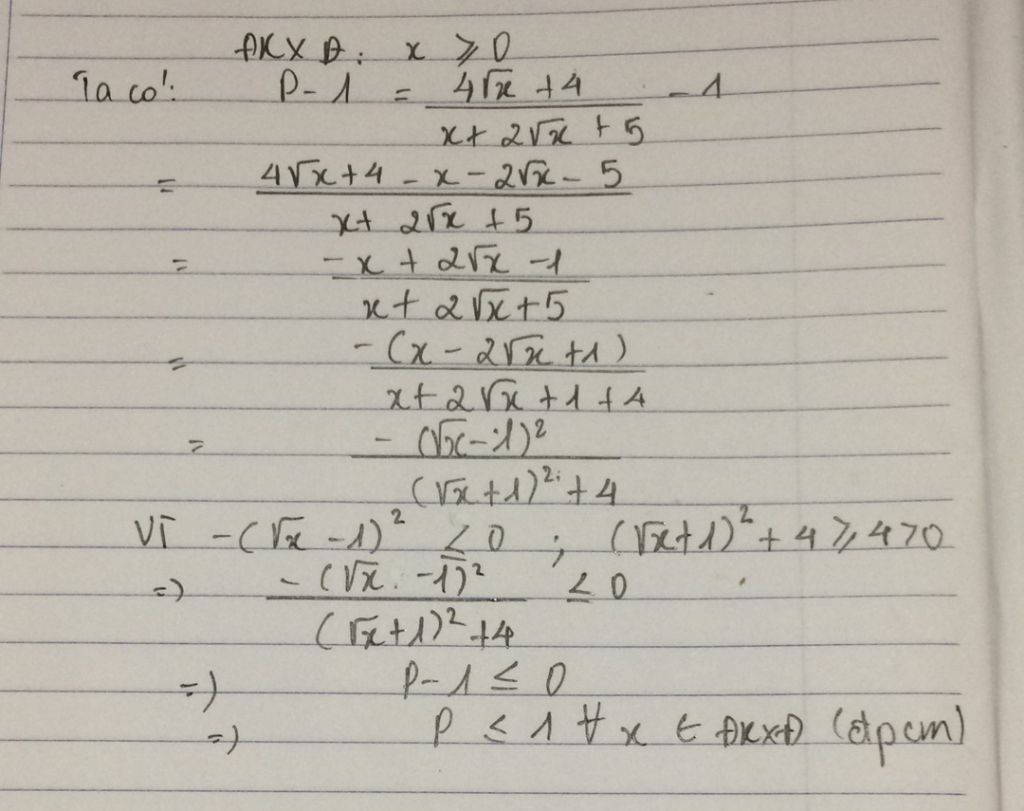 ĐKXĐ: x ⩾ 0
Ta có: P - 1 = (4√x + 4)/(x + 2√x + 5) - 1
= (4√x + 4 - x - 2√x - 5)/(x + 2√x + 5)
= (-x + 2√x - 1)/(x + 2√x + 5)
= -(x - 2√x + 1)/(x + 2√x + 1 + 4)
= -(√x - 1)²/((√x + 1)² + 4)
Vì -(√x - 1)² ≤ 0 ; (√x + 1)² + 4 ⩾ 4 > 0
=> -(√x - 1)²/((√x + 1)² + 4) ≤ 0
=> P - 1 ≤ 0
=> P ≤ 1 ∀ x ∈ ĐKXĐ (đpcm)